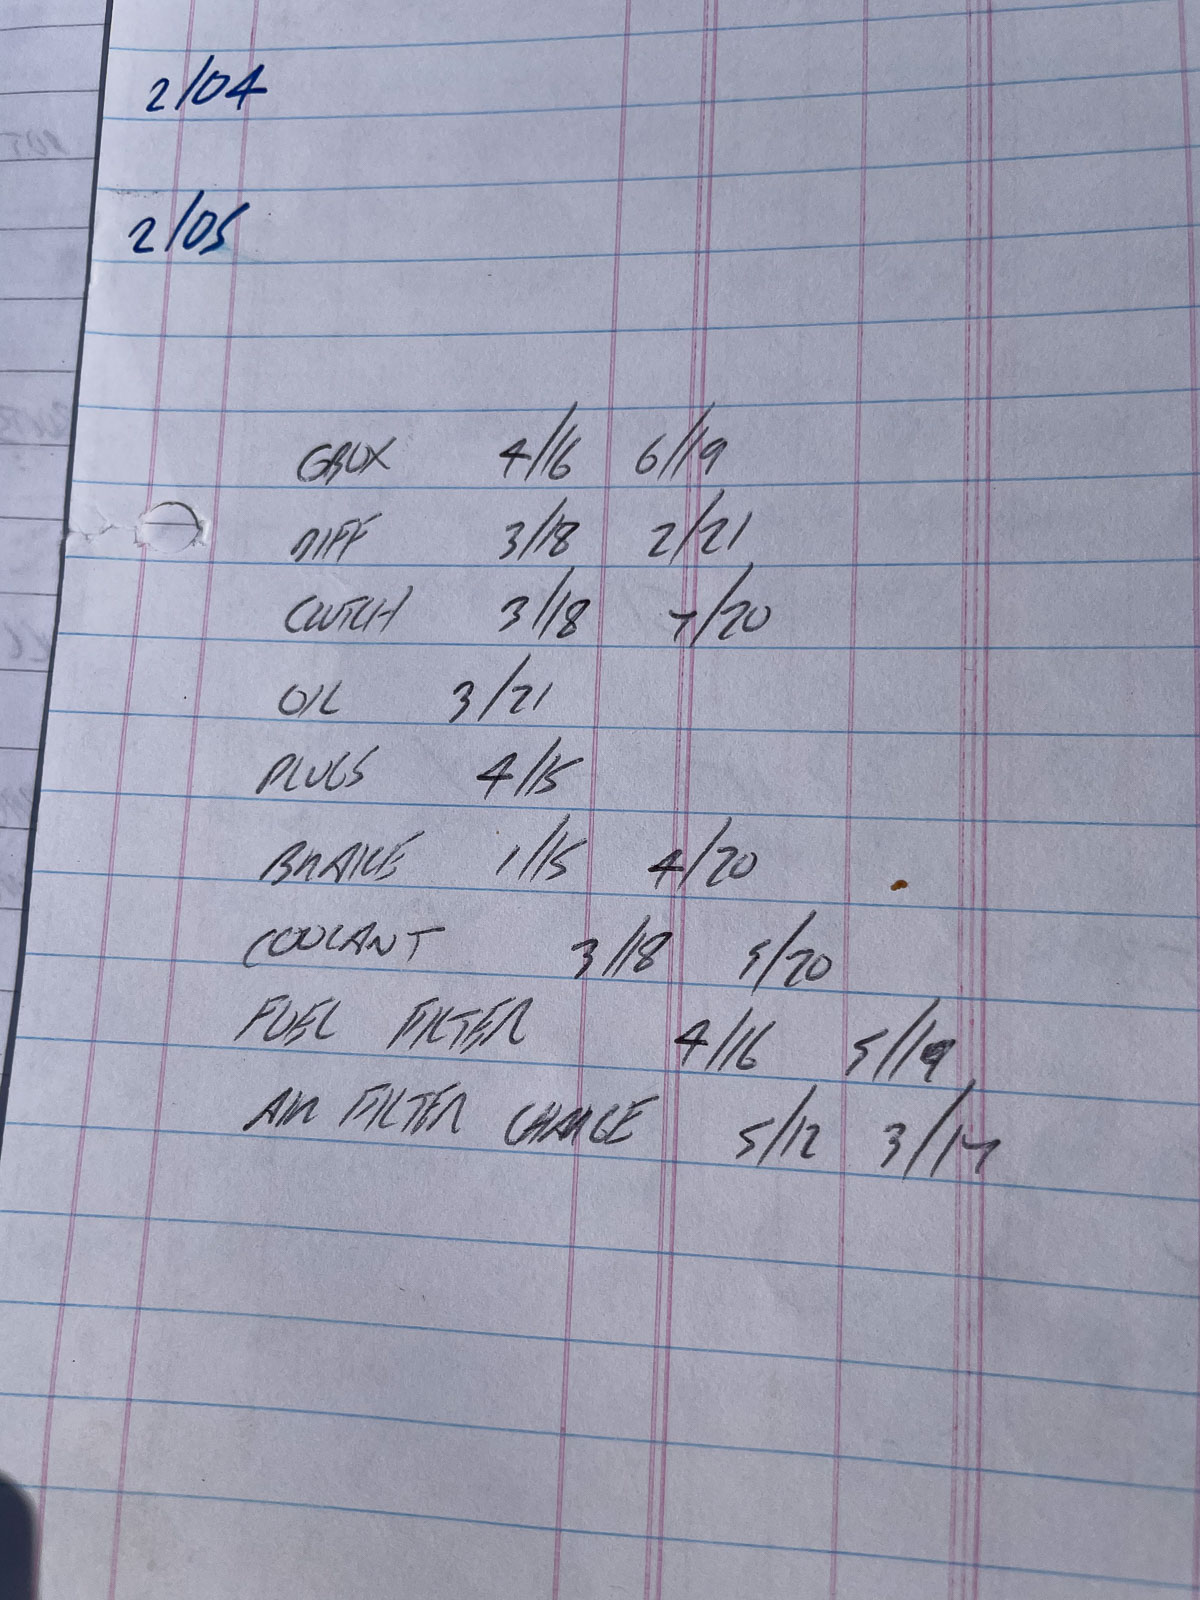 2/04
2/05
GBOX 4/16 6/19
DIFF 3/18 2/21
CLUTCH 3/18 7/20
OIL 3/21
PLUGS 4/15
BRAKE 1/15 4/20
COOLANT 3/18 5/20
FUEL FILTER 4/16 5/19
AIR FILTER CHANGE 5/12 3/17